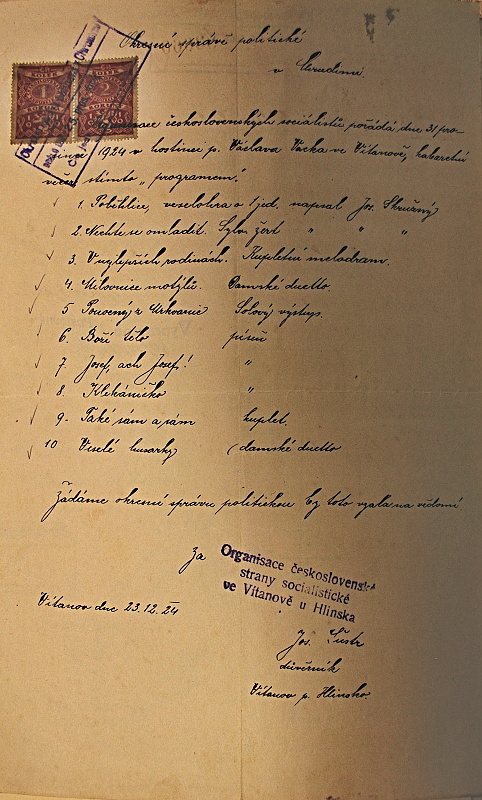 Okresní správě politické
v Chrudimi.
KOLEK KOLEK
1 2
československých socialistů pořádá dne 31 pro-
since 1924 v hostinci p. Václava Vacka ve Vítanově, kabaretní
večer s tímto „programem".
1. veselohra o 1 jed. napsal Jos. Skružný
2. Nechte se omladit. Sylv. žert " " "
3. V nejlepších rodinách. Kupletní melodram.
4. Milovnice motýlů. Damské duetto.
5 Solový výstup.
6. Boží tělo píseň
7. Josef, ach Josef! "
8. Klekáníčko "
9. Také sám a sám kuplet.
10 Veselé husarky (damské duetto
Žádáme okresní správu politickou by toto vzala na vědomí
Za
Organisace československé
strany socialistické
ve Vítanově u Hlinska
Vítanov dne 23.12.24
Jos. Šustr
důvěrník
Vítanov p. Hlinsko.